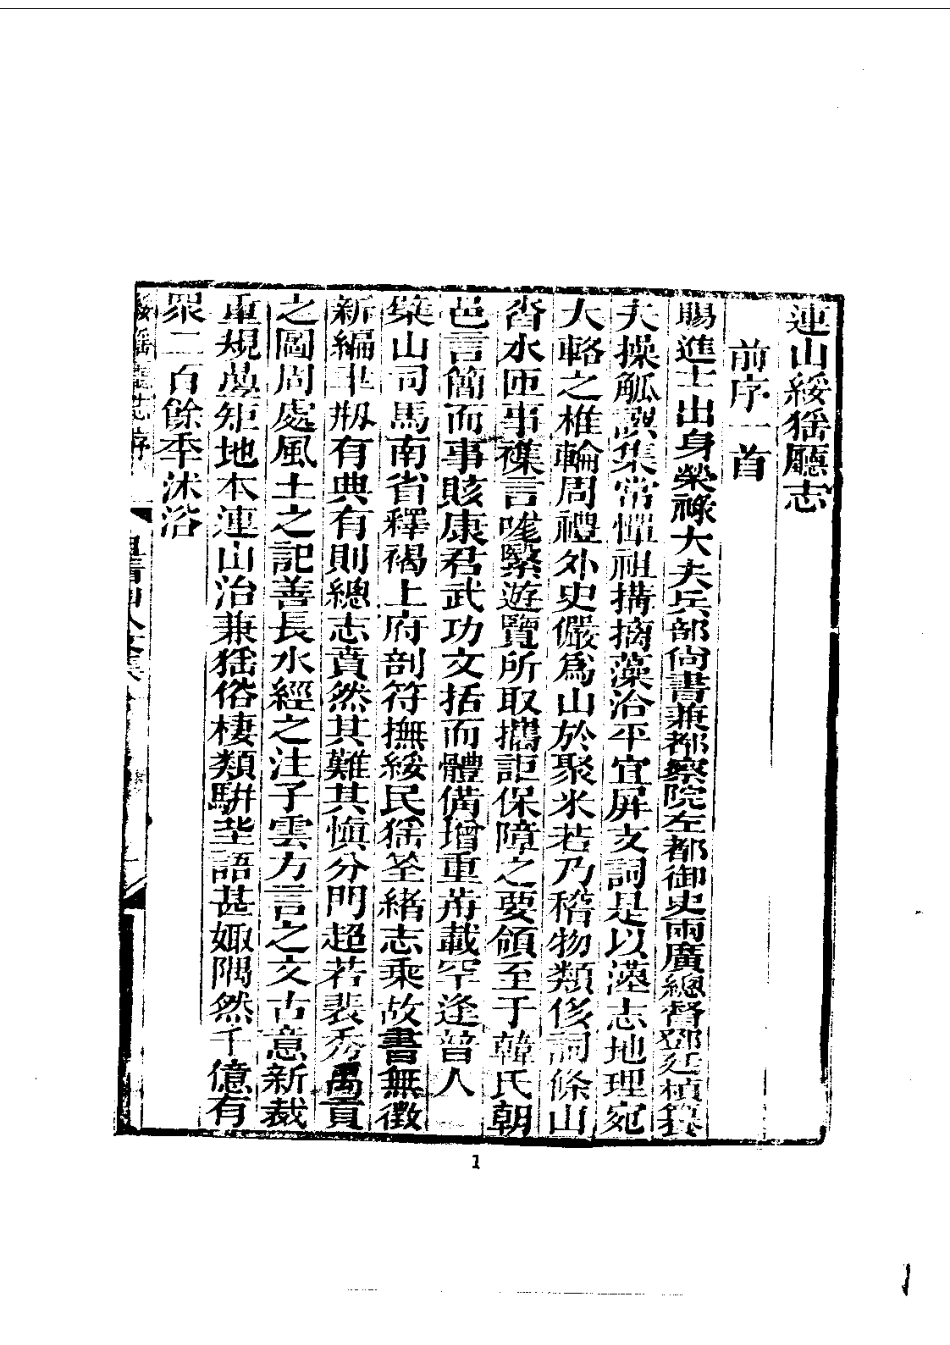 連山綏猺廳志
前序一首
賜進士出身榮祿大夫兵部尚書兼都察院左都御史兩廣總督鄧廷楨篹
夫操觚譔集常憚祖搆摛藻洽平宜屏文詞是以漢志地理宛
大輅之椎輪周禮外史儼爲山於聚米若乃稽物類侈詞條山
沓水匝事襍言嚨繄遊覽所取攜詎保障之要領至于韓氏朝
邑言簡而事賅康君武功文括而體備增重荊載罕逢普人
粲山司馬南省釋褐上府剖符撫綏民猺荃緖志乘故書無徵
新編丰刱有典有則總志賁然其難其愼分門超若裴秀禹貢
之圖周處風土之記善長水經之注子雲方言之文古意新裁
重規疊矩地本連山治兼猺俗棲類駢坒語甚娵隅然千億有
眾二百餘年沐浴
綏猺廳志序